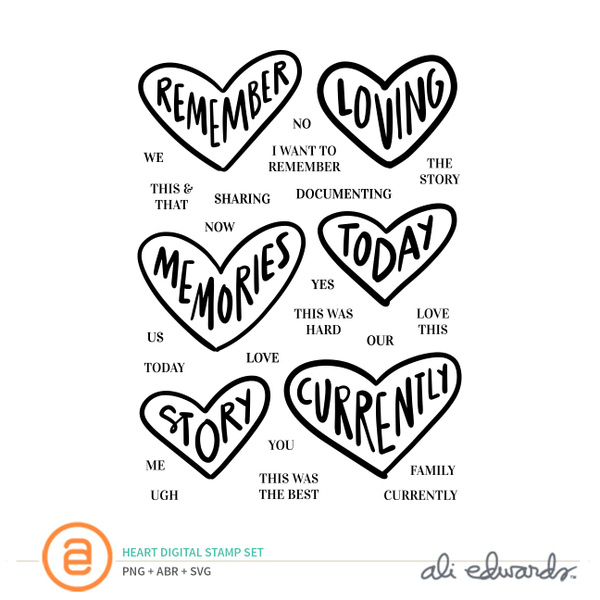 REMEMBER
LOVING
NO
WE
I WANT TO
REMEMBER
THE
STORY
THIS &
THAT
SHARING
DOCUMENTING
NOW
MEMORIES
TODAY
YES
THIS WAS
HARD
LOVE
THIS
US
OUR
TODAY
LOVE
STORY
CURRENTLY
YOU
ME
FAMILY
THIS WAS
THE BEST
UGH
CURRENTLY
a
HEART DIGITAL STAMP SET
PNG + ABR + SVG
ali edwards™